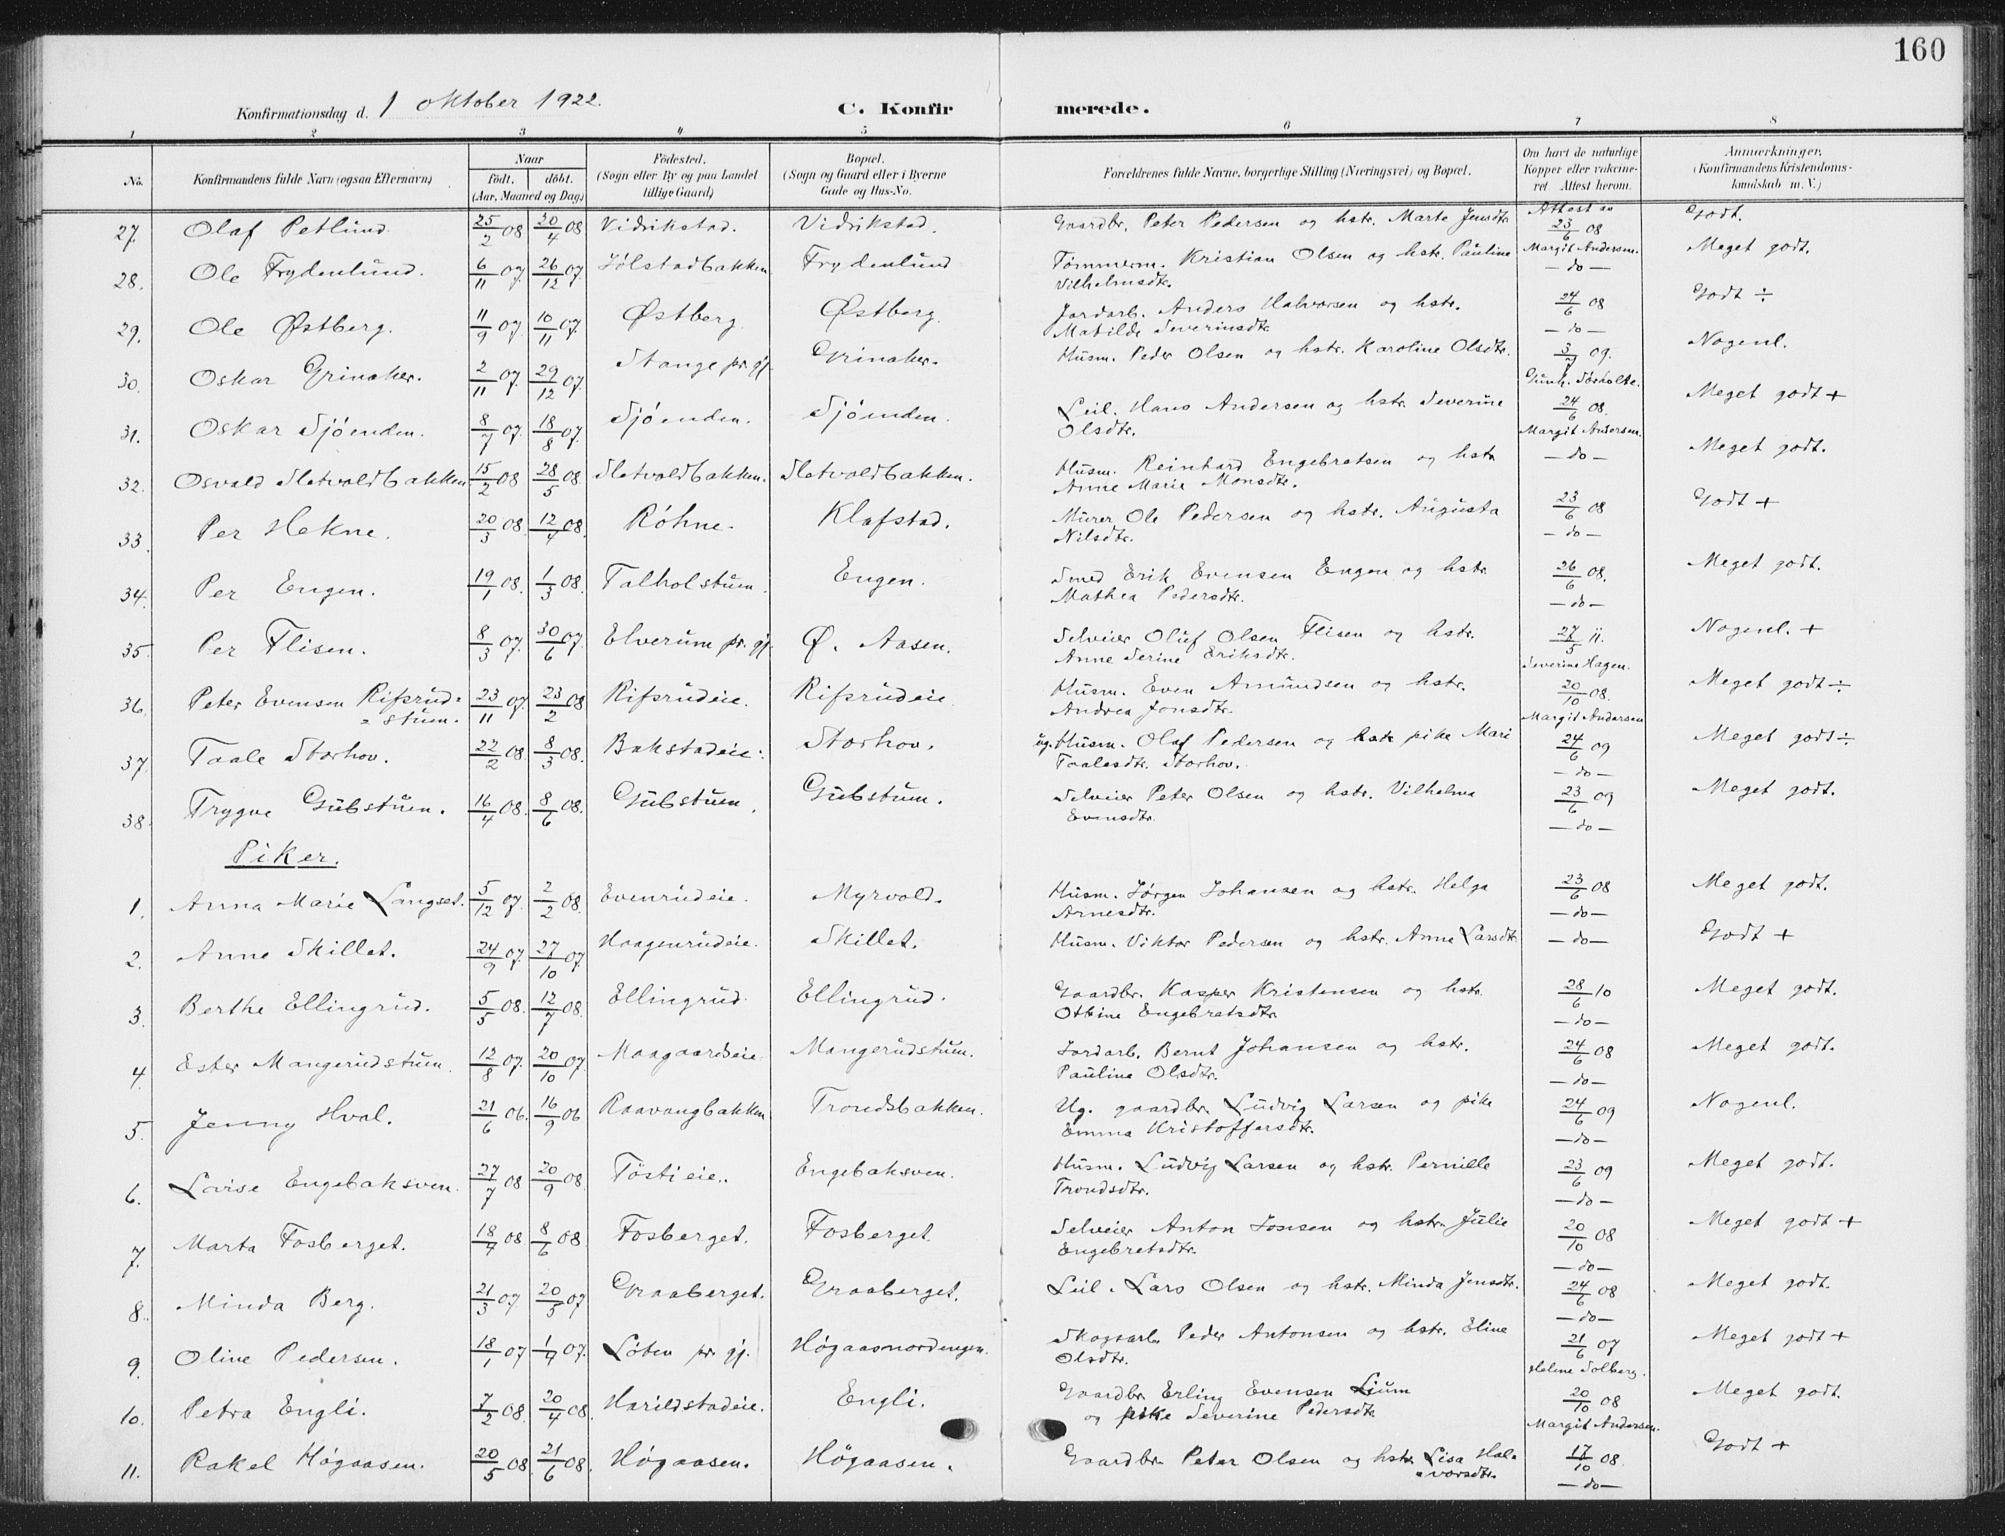 160
Konfirmationsdag d. 1 oktober 1922. C. Konfirmerede.
1 2 3 4 5 6 7 8
No. Konfirmandens fulde Navn (ogsaa Efternavn) Naar født. døbt. (Aar, Maaned og Dag) Fødested. (Sogn eller By og paa Landet tillige Gaard) Bopæl. (Sogn og Gaard eller i Byerne Gade og Hus-No. Forældrenes fulde Navne, borgerlige Stilling (Næringsvei) og Bopæl. Om havt de naturlige Kopper eller vakcineret Attest herom. Anmerkninger. (Konfirmandens Kristendomskundskab m. V.)
27. Olaf Petlund. 25/2 08 20/4 08 Vidrikstad. Vidrikstad. Gaardbr. Peter Pedersen og hstr. Marte Jensdtr. Attest av 23/6 08 Margit Andersen. Godt.
28. Ole Frydenlund. 6/11 07. 26/12 07 Jølstadbakken Frydenlund Tømmerm. Kristian Olsen og hstr. Pauline Vilhelmsdtr. — do — Meget godt.
29. Ole Østberg. 11/9 07. 10/11 07. Østberg Østberg Jordarb. Anders Halvorsen og hstr. Matilde Severinsdtr. 24/6 08 — do — Godt ÷
30. Oskar Grinaker. 2/11 07. 29/12 07. Stange pr. gj. Grinaker. Husm. Peder Olsen og hstr. Karoline Olsdtr. 3/7 09. Gunh. Sørholte. Nogenl.
31. Oskar Sjøenden. 8/7 07. 18/8 07. Sjøenden. Sjøenden. Leil. Hans Andersen og hstr. Severine Olsdtr. 24/6 08. Margit Andersen. Meget godt +
32. Osvald Sletvoldbakken 15/2 08 28/5 08. Sletvoldbakken. Sletvoldbakken. Husm. Reinhard Engebretsen og hstr. Anne Marie Monsdtr. — do — Meget godt.
33. Per Hekne. 20/3 08. 12/4 08. Røhne. Klafstad. Murer Ole Pedersen og hstr. Augusta Nilsdtr. 23/6 08 — do — Godt +
34. Per Engen. 19/1 08. 1/3 08. Talholstuen. Engen. Smed Erik Evensen Engen og hstr. Mathea Pedersdtr. 26/6 08. — do — Meget godt.
35. Per Flisen. 8/3 07. 30/6 07. Elverum pr. gj. Ø. Aasen. Selveier Oluf Olsen Flisen og hstr. Anne Serine Eriksdtr. 27/5 11. Severine Hagen. Nogenl. +
36. Peter Evensen Rifsrud=stuen. 23/11 07. 23/2 08 Rifsrudeie. Rifsrudeie. Husm. Even Amundsen og hstr. Andrea Jonsdtr. 20/10 08. Margit Andersen Meget godt ÷
37. Taale Storhov. 22/2 08. 8/3 08. Bakstadeie. Storhov. ug. Husm. Olaf Pedersen og pike Mari Taalesdtr. Storhov. 24/6 09 — do — Meget godt ÷
38. Trygve Gubstuen. 16/4 08. 8/6 08. Gubstuen. Gubstuen. Selveier Peter Olsen og hstr. Vilhelma Evensdtr. 23/6 09 — do — Meget godt.
Piker.
1. Anna Marie Langset. 5/12 07. 2/2 08. Evenrudeie. Myrvold. Husm. Jørgen Johansen og hstr. Helga Arnesdtr. 23/6 08 — do — Meget godt.
2. Anne Skillet. 24/9 07. 27/10 07. Haagenrudeie. Skillet. Husm. Viktor Pedersen og hstr. Anne Larsdtr. — do — Godt +
3. Berthe Ellingrud. 5/5 08. 12/7 08. Ellingrud. Ellingrud. Gaardbr. Kasper Kristensen og hstr. Otbine Engebretsdtr. 28/6 10 — do — Meget godt.
4. Ester Mangerudstuen. 12/8 07. 20/10 07. Maagaardseie. Mangerudstuen. Jordarb. Bernt Johansen og hstr. Pauline Olsdtr. 24/6 08 — do — Meget godt.
5. Jenny Hval. 21/6 06. 16/9 06 Raavangbakken Trondsbakken. Ug. gaardbr. Ludvig Larsen og pike Emma Kristoffersdtr. 24/6 09 — do — Nogenl.
6. Lovise Engebaksven. 27/7 08 20/9 08. Tøstieie. Engebaksven. Husm. Ludvig Larsen og hstr. Pernille Trondsdtr. 23/6 09 — do — Meget godt.
7. Marta Fosberget. 18/4 08. 8/6 08. Fosberget. Fosberget. Selveier Anton Jonsen og hstr. Julie Engebretsdtr. 20/10 08 — do — Meget godt +
8. Minda Berg. 21/3 07 20/5 07 Graaberget. Graaberget. Leil. Lars Olsen og hstr. Minda Jensdtr. 24/6 08 — do — Meget godt.
9. Oline Pedersen. 18/1 07 1/4 07. Løten pr. gj. Høgaasnordengen. Skogsarb. Peder Antonsen og hstr. Eline Olsdtr. 21/6 07 Helene Solberg. Meget godt +
10. Petra Engli. 7/2 08. 20/4 08. Harildstadeie. Engli. Gaardbr. Erling Evensen Ljum og pike Severine Pedersdtr. 20/10 08 Margit Andersen. Meget godt.
11. Rakel Høgaasen. 20/5 08. 21/6 08. Høgaasen. Høgaasen. Gaardbr. Peter Olsen og hstr. Lisa Hal=vorsdtr. 17/10 08. — do — Godt +